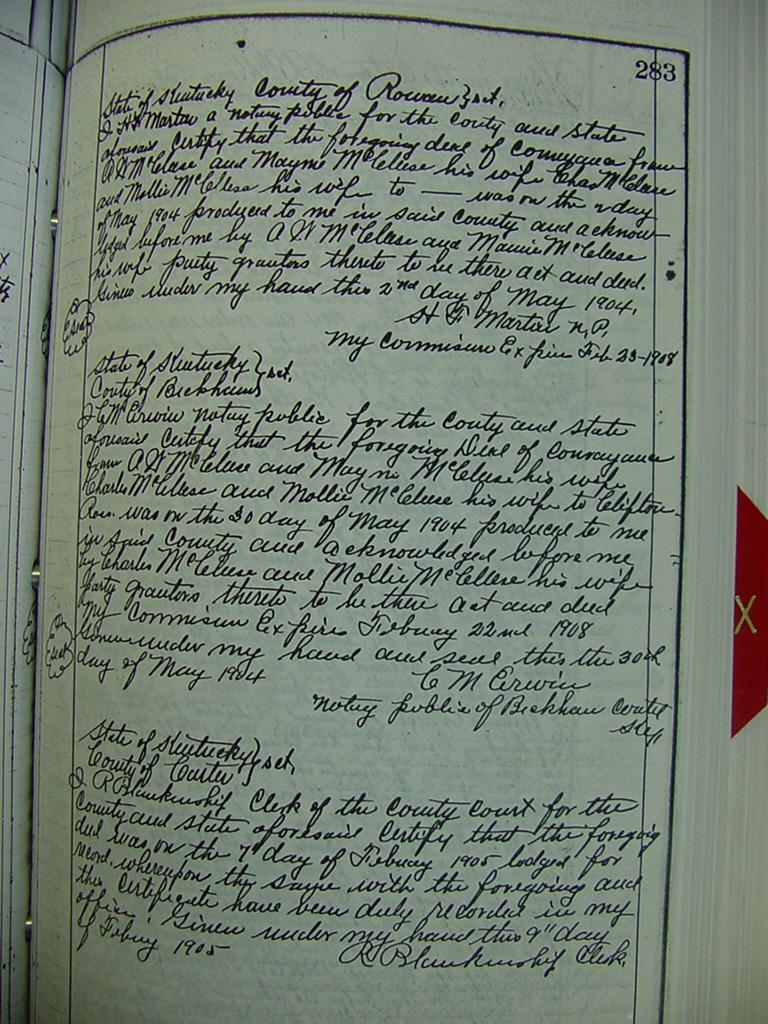 283
State of Kentucky County of Rowan } sct.
I H F Martin a notary public for the couty and state
aforesaid certify that the foregoing deed of conveyance from
A W McClese and Mayme McCleese his wife Chas McClese
and Mollie McCleese his wife to — was on the 2 day
of May 1904 produced to me in said county and acknow
ledged before me by A W McCleese and Mamie McCleese
his wife party grantors thereto to be there act and deed.
Given under my hand this 2nd day of May 1904.
H F Martin N.P.
My commission Expires Feb 23-1908
State of Kentucky } sct.
County of Beckham
I C M Erwin notary public for the couty and state
aforesaid certify that the foregoing Deed of Convayance
from A W McCleese and Mayme McCleese his wife
Charles McCleese and Mollie McCleese his wife to Clifton
was on the 30 day of May 1904 produced to me
in said County and acknowledged before me
by Charles McCleese and Mollie McCleese his wife
party grantors thereto to be there act and deed
My Commission Expires Febuary 22nd 1908
Given under my hand and seal this the 30th
day of May 1904 C M Erwin
Notary public of Beckham County
Ky
State of Kentucky } sct.
County of Carter
I R Blankinship Clerk of the county court for the
county and state aforesaid certify that the foregoing
deed was on the 7" day of Febuary 1905 lodged for
record whereupon the same with the foregoing and
this certificate have been duly recorded in my
office. Given under my hand this 9" day
of Febuary 1905 R Blankinship Clerk.
X